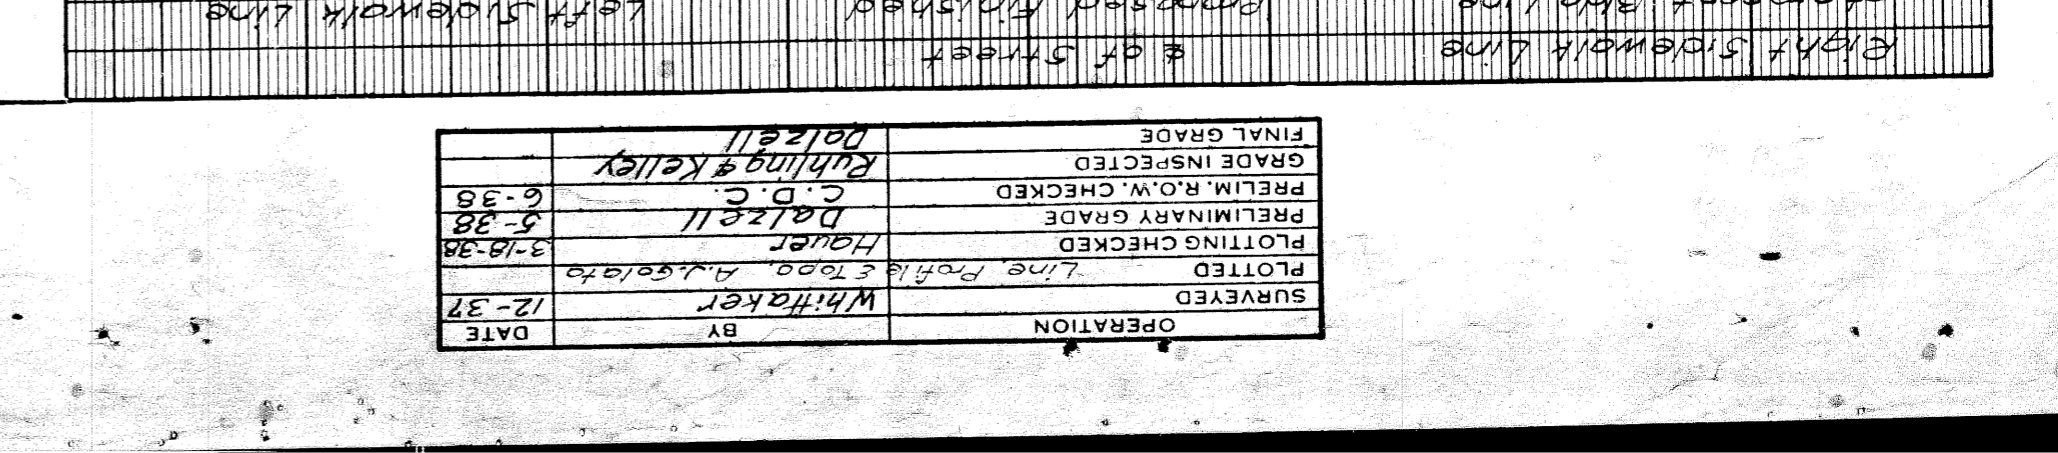 OPERATION BY DATE
SURVEYED Whittaker 12-37
PLOTTED Line, Profile & Topo, A.J. Golato
PLOTTING CHECKED Hauer 3-18-38
PRELIMINARY GRADE Dalzell 5-38
PRELIM. R.O.W. CHECKED C.D.C. 6-38
GRADE INSPECTED Ruhling & Kelley
FINAL GRADE Dalzell
Right Sidewalk Line ℄ of Street
Line Proposed Finished Left Sidewalk Line